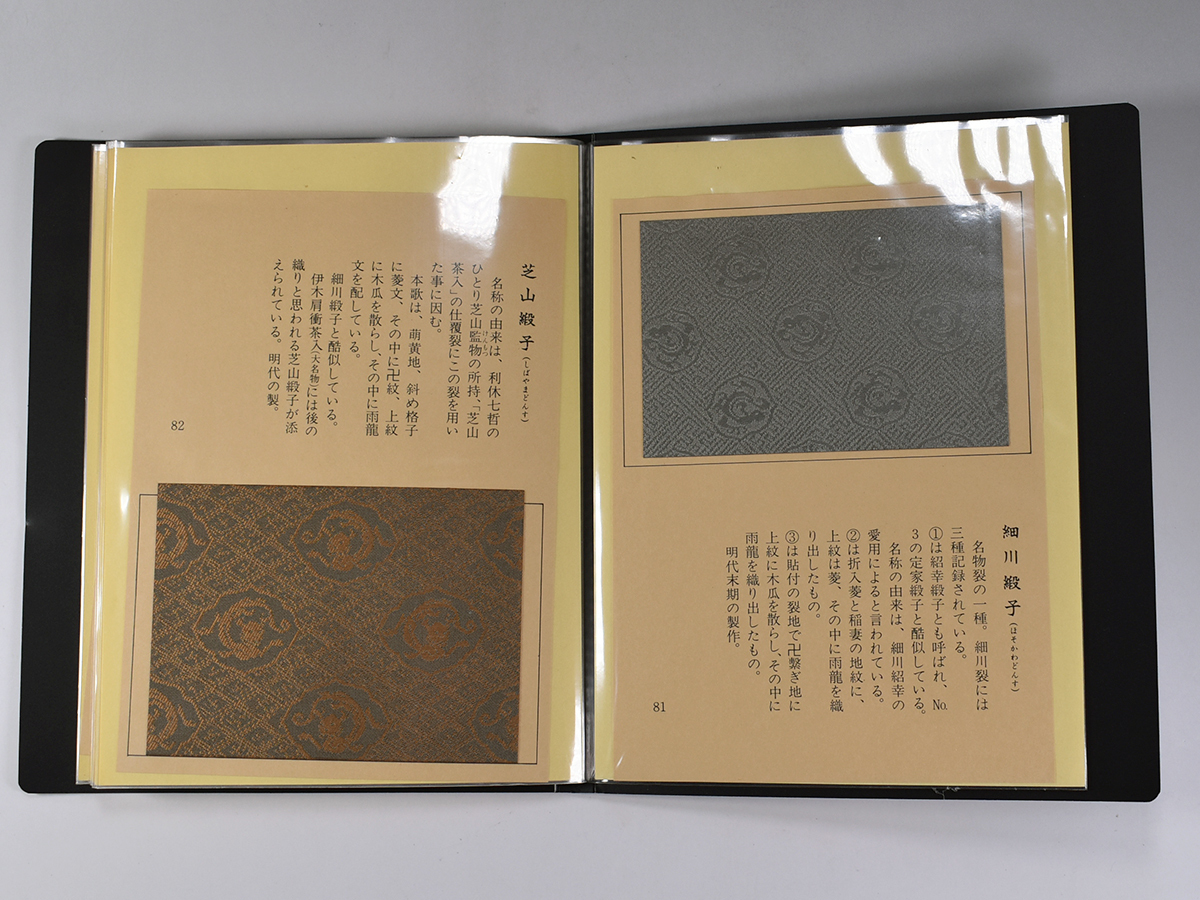 細川緞子(ほそかわどんす)
名物裂の一種。細川裂には
三種記録されている。
①は紹幸緞子とも呼ばれ、No.
3の定家緞子と酷似している。
名称の由来は、細川紹幸の
愛用によると言われている。
②は折入菱と稲妻の地紋に、
上紋は菱、その中に雨龍を織
り出したもの。
③は貼付の裂地で卍繋ぎ地に
上紋に木瓜を散らし、その中に
雨龍を織り出したもの。
明代末期の製作。
81
芝山緞子(しばやまどんす)
名称の由来は、利休七哲の
ひとり芝山監物の所持、「芝山
けんもつ
茶入」の仕覆裂にこの裂を用い
た事に因む。
本歌は、萌黄地、斜め格子
に菱文、その中に卍紋、上紋
に木瓜を散らし、その中に雨龍
文を配している。
細川緞子と酷似している。
伊木肩衝茶入(大名物)には後の
織りと思われる芝山緞子が添
えられている。明代の製。
82